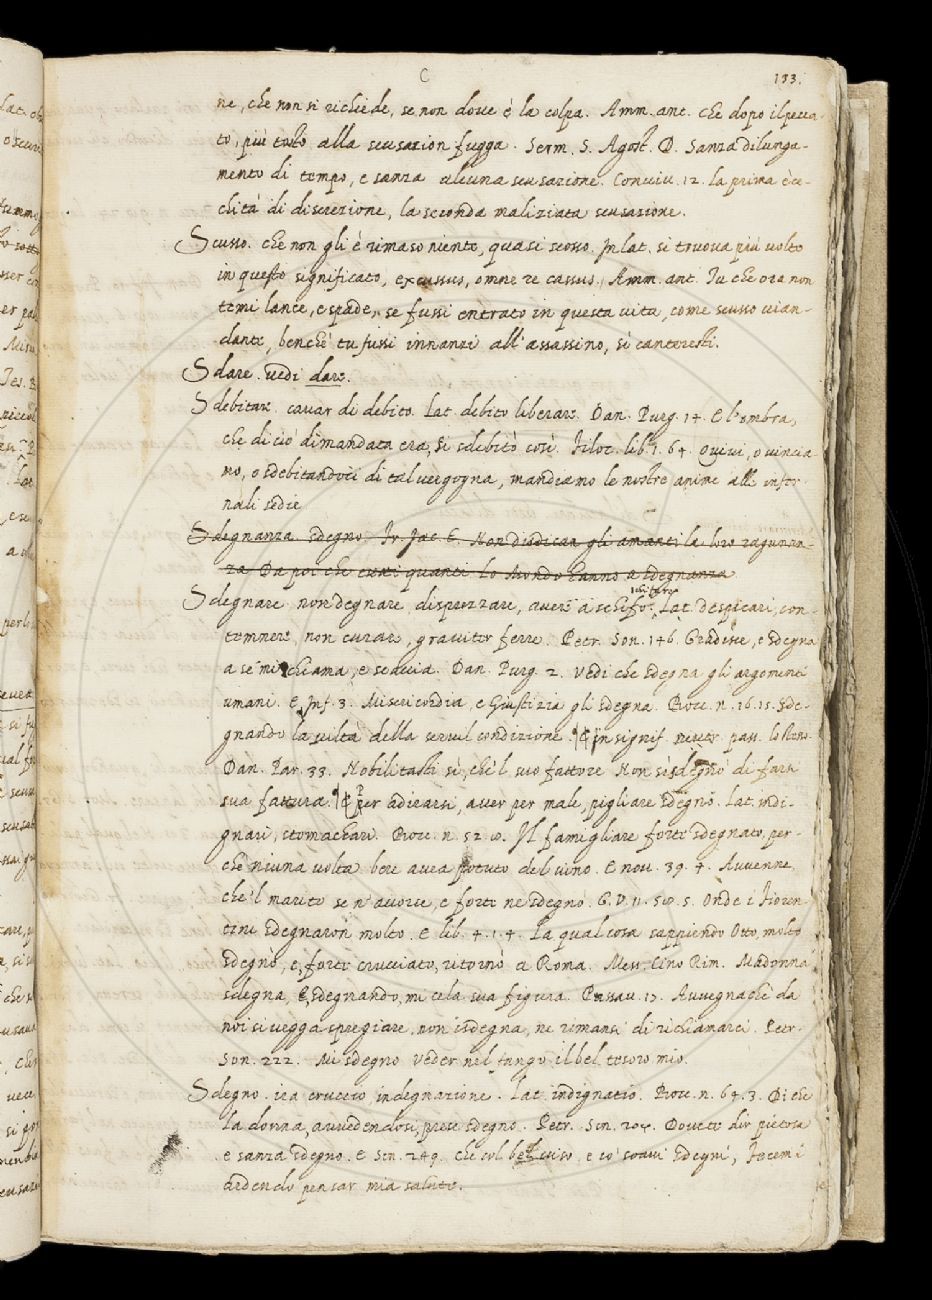 C
133.
ne, che non si richiede, se non dove è la colpa. Amm. ant. che dopo il pecca-
to, più tosto alla scusazion fugga. Serm. S. Agost. D. Sanza dilunga-
mento di tempo, e sanza alcuna scusazione. Conviv. 12. la prima è ce-
chità di discrezione, la seconda maliziata scusazione.
Scusso. che non gli è rimaso niente, quasi scosso. In lat. si truova più volte
in questo significato, excussus, omne re cassus. Amm. ant. Tu che ora non
temi lance, e spade, se fussi entrato in questa vita, come scusso vian-
dante, benchè tu fussi innanzi all'assassino, sì canteresti.
Sdare. vedi dare.
Sdebitare. cavar di debito. Lat. debito liberare. Dan. Purg. 14. E l'ombra,
che di ciò dimandata era, si sdebitò così. Filoc. lib. 1. 64. Quivi, o vincia-
no, o sdebitandoci di tal vergogna, mandiamo le nostre anime alle infer-
nali sedie
Sdegnanza. sdegno. Fr. Jac. T. Non disdican gli amanti la loro ragunan-
za Da poi che tutti quanti Lo Mondo hanno a sdegnanza
Sdegnare. non degnare, disprezzare, avere a schifo. Lat. despicari, con-
temnere, non curare, graviter ferre. Petr. Son. 146. Gradisce, e sdegna
a sè mi chiama, e scaccia. Dan. Purg. 2. Vedi che sdegna gli argomenti
umani. E Inf. 3. Misericordia, e Giustizia gli sdegna. Bocc. n. 16. 15. Sde-
gnando la viltà della servil condizione. E in signif. neutr. pass. lo stesso
Dan. Par. 33. Nobilitasti sì, che 'l suo fattore Non si sdegnò di farsi
sua fattura. E per adirarsi, aver per male, pigliare sdegno. Lat. indi-
gnari, stomachari. Bocc. n. 52. Il famigliare forte sdegnato, per-
che niuna volta bere avea potuto del vino. E nov. 39. 4. Avvenne
che 'l marito se n'avvide, e forte ne sdegnò. G. V. 11. 5. Onde i Fioren-
tini sdegnaron molto. E lib. 4. 1. 4. La qual cosa sappiendo Otto, molto
sdegnò, e, forte crucciato, ritornò a Roma. Mess. Cino Rim. Madonna
sdegna, E, sdegnando, mi cela sua figura. Passav. 17. Avvegnachè da
noi si vegga spregiare, non isdegna, ne rimansi di richiamarci. Petr.
Son. 222. Mi sdegno Veder nel fango il bel tesoro mio.
Sdegno. ira cruccio, indegnazione. Lat. indignatio. Bocc. n. 64. 3. Di che
la donna, avvedendosi, prese sdegno. Petr. Son. Dovete dir pietosa
e sanza sdegno. E son. 249. Che col bel viso, e co' soavi sdegni, Facemi
ardendo pensar mia salute.